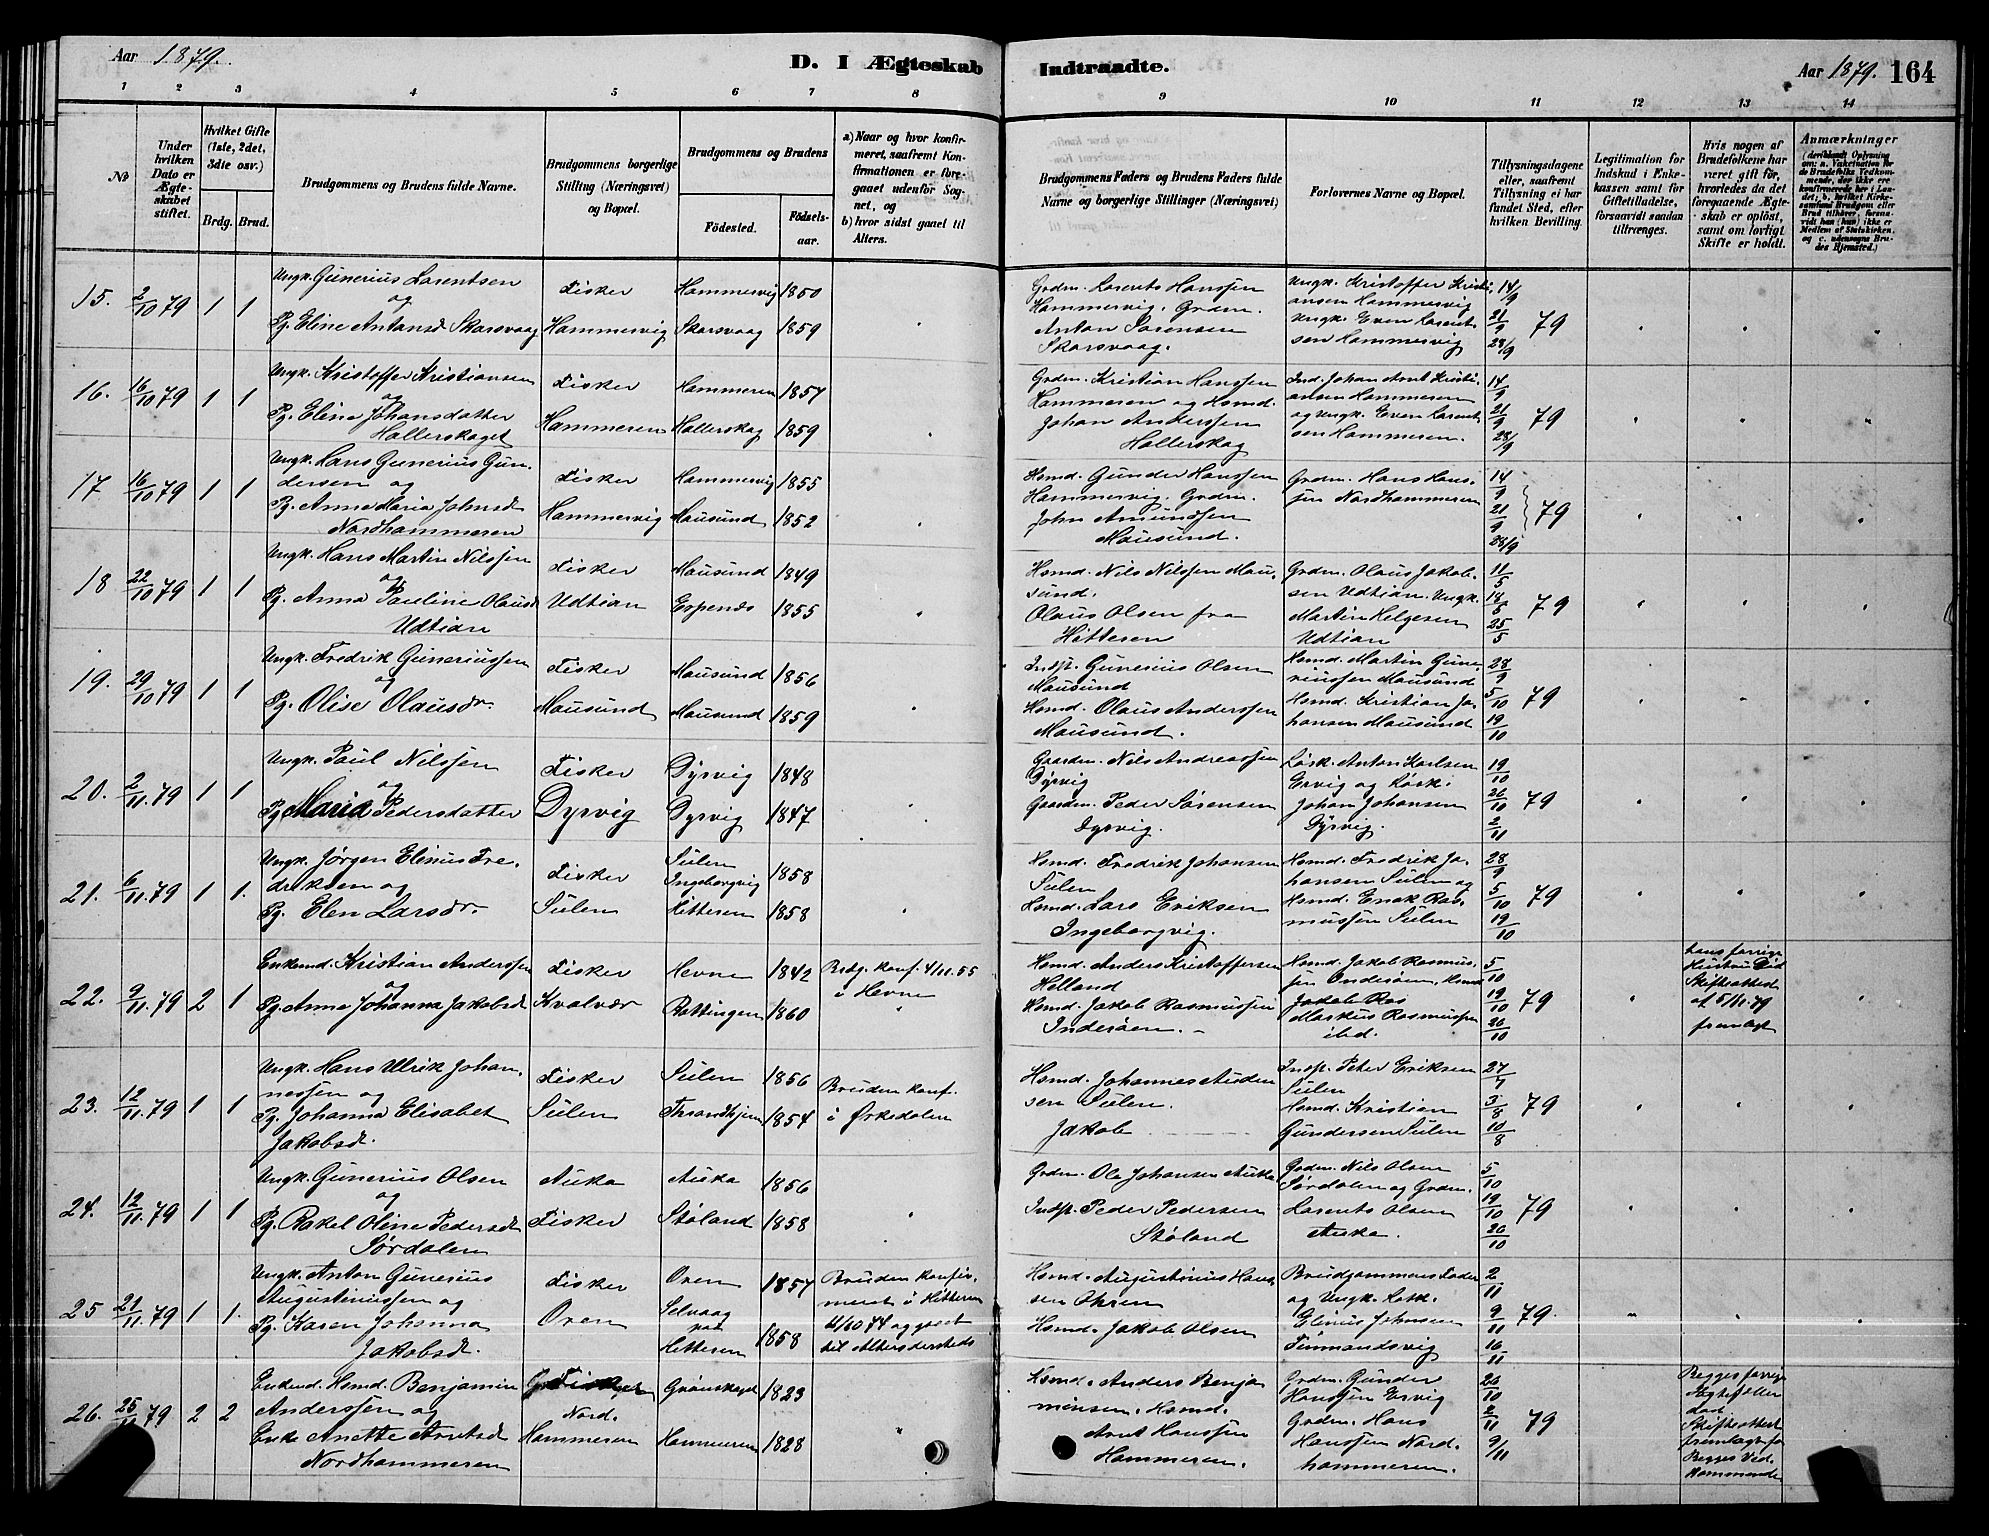 Aar 1879.
D. I Ægteskab Indtraadte.
Aar 1879. 164
1 2 3 4 5 6 7 8 9 10 11 12 13 14
No
Under hvilken Dato er Ægteskabet stiftet.
Hvilket Gifte (1ste, 2det, 3die osv.)
Brdg. Brud.
Brudgommens og Brudens fulde Navne.
Brudgommens borgerlige Stilling (Næringsvei) og Bopæl.
Brudgommens og Brudens
Fødested. Fødselsaar.
a) Naar og hvor konfirmeret, saafremt Konfirmationen er foregaaet udenfor Sognet, og
b) hvor sidst gaaet til Alters.
Brudgommens Faders og Brudens Faders fulde Navne og borgerlige Stillinger (Næringsvei)
Forlovernes Navne og Bopæl.
Tillysningsdagene eller, saafremt Tillysning ei har fundet Sted, efter hvilken Bevilling.
Legitimation for Indskud i Enkekassen samt for Giftetilladelse, forsaavidt saadan tiltrænges.
Hvis nogen af Brudefolkene har været gift før, hvorledes da det foregaaende Ægteskab er opløst, samt om lovligt Skifte er holdt.
Anmærkninger
15. 2/10 79 1 1
Ungk. Gunerius Lorentsen
og
Pg. Eline Antonsd. Skarsvaag
Fisker
Hammervig
Hammervig 1850
Skarsvaag 1859
Grdm. Lorents Hanssen
Hammervig. Grdm.
Anton Sørensen
Skarsvaag.
Ungk. Kristoffer Kristi-
ansen Hammervig
Ungk. Even Lorent-
sen Hammervig
14/9
21/9 79
28/9
16. 16/10 79 1 1
Ungk. Kristoffer Kristiansen
og
Pg. Elina Johansdatter
Hallerskaget
Fisker
Hammeren
Hammeren 1857
Hallerskag 1859
Grdm. Kristian Hanssen
Hammeren og Hsmd.
Johan Anderssen
Hallerskag
Ind. Johan Arnt Kristi-
ansen Hammeren
og Ungk. Even Lorent-
sen Hammeren.
14/9
21/9 79
28/9
17 16/10 79 1 1
Ungk. Hans Gunerius Gun-
dersen og
Pg. Anne Maria Johnsd.
Nordhammeren
Fisker
Hammervig
Hammervig 1855
Mausund 1852
Hsmd. Gunder Hanssen
Hammervig. Grdm.
John Amundssen
Mausund.
Grdm. Hans Hans-
sen Nordhammeren
14/9
21/9 79
28/9
18 22/10 79 1 1
Ungk. Hans Martin Nilssen
og
Pg. Anna Pauline Olausd.
Udtian
Fisker
Udtian
Mausund 1849
Espenæs 1855
Hsmd. Nils Nilssen Mau-
sund.
Olaus Olsen fra
Hitteren
Grdm. Olaus Jakob-
sen Udtian. Ungk.
Martin Helgesen
Udtian
11/5
18/5 79
25/5
19. 29/10 79 1 1
Ungk. Fredrik Guneriussen
og
Pg. Olise Olausdr.
Fisker
Mausund
Mausund 1856
Mausund 1859
Indst. Gunerius Olsen
Mausund
Hsmd. Olaus Anderssen
Mausund.
Hsmd. Martin Gune-
riussen Mausund
Hsmd. Kristian Jo-
hansen Mausund
28/9
5/10 79
19/10
20. 2/11. 79 1 1
Ungk. Paul Nilssen
og
Pg Maria Pedersdatter
Fisker
Dyrvig
Dyrvig 1848
Dyrvig 1847
Gaardm. Nils Andreassen
Dyrvig
Gaardm. Peder Sørensen
Dyrvig.
Løsk. Anton Karlsen
Ervig og Løsk.
Johan Johansen
Dyrvig.
19/10
26/10 79
2/11
21. 6/11. 79 1 1.
Ungk. Jørgen Elinus Fre-
driksen og
Pg. Elen Larsdr.
Fisker
Sulen
Sulen
Ingeborgvig 1858
Hitteren 1858
Hsmd. Fredrik Johansen
Sulen
Hsmd. Lars Eriksen
Ingeborgvig.
Hsmd. Fredrik Jo-
hansen Sulen og
Hsmd. Enok Ras-
mussen Sulen
28/9
5/10 79
19/10
22. 9/11. 79 2 1
Enkemd. Kristian Anderssen
og
Pg. Anne Johanna Jakobsd.
Fisker
Kvalvær
Hevne 1842
Rottingen 1860
Brdg. konf. 4/11.55
i Hevne
Hsmd. Anders Kristoffersen
Helland
Hsmd. Jakob Rasmussen
Inderøen.
Hsmd. Jakob Rasmus-
sen Inderøen. Hsmd
Jakob Ras
Markus Rasmussen
ibd.
5/10
19/10 79
26/10
Hans forrige
Hustru død
Skifteattest
af 5/11.79
fremlagt
23. 12/11. 79 1 1
Ungk. Hans Ulrik Johan-
nessen og
Pg. Johanna Elisabet
Jakobsd.
Fisker
Sulen
Sulen 1856
Throndhjem 1854
Bruden konf.
i Ørkedalen
Hsmd. Johannes Auden
sen Sulen.
Jakob
Indst. Peter Eriksen
Sulen
Hsmd. Kristian
Gundersen Sulen
27/7
3/8 79
10/8
24. 12/11. 79 1 1
Ungk. Gunerius Olsen
og
Pg. Rakel Oline Pedersd.
Sørdalen
Auka
Fisker
Auka 1856
Støland 1858
Grdm. Ola Johansen Auka
Indst. Peder Pedersen
Støland
Grdm. Nils Olsen
Sørdalen og Grdm.
Lorents Olsen
Auka.
5/10
19/10 79
26/10
25 21/11. 79 1 1.
Ungk. Anton Gunerius
Augustinussen og
Pg. Karen Johanna
Jakobsd.
Fisker
Oren
Oren 1857
Selvaag
paa
Hitteren 1858
Bruden konfir-
meret i Hitteren
4/10 74 og gaaet
til Alters dersteds
Hsmd. Augustinus Hans-
sen Ohren
Hsmd. Jakob Olsen
Brudgommens Fader
og Ungk.
Elinus Johnsen
Finmandsvig
2/11
9/11 79.
16/11
26. 25/11 79 2 2
Enkmd. Hsmd. Benjamin
Anderssen og
Enke Anette Arntsd.
Nordhammeren
Fisker
Nord-
Hammeren
Grønskaget 1823
Hammeren 1828
Hsmd. Anders Benja
minsen. Hsmd.
Arnt Hanssen
Hammeren.
Grdm. Gunder
Hanssen Ervig
Grdm. Hans
Hanssen Nord-
hammeren.
26/10
2/11 79
9/11
Begges forrige
Ægtefeller
død
Skifteattest
fremlagt for
Begges Ved-
kommende